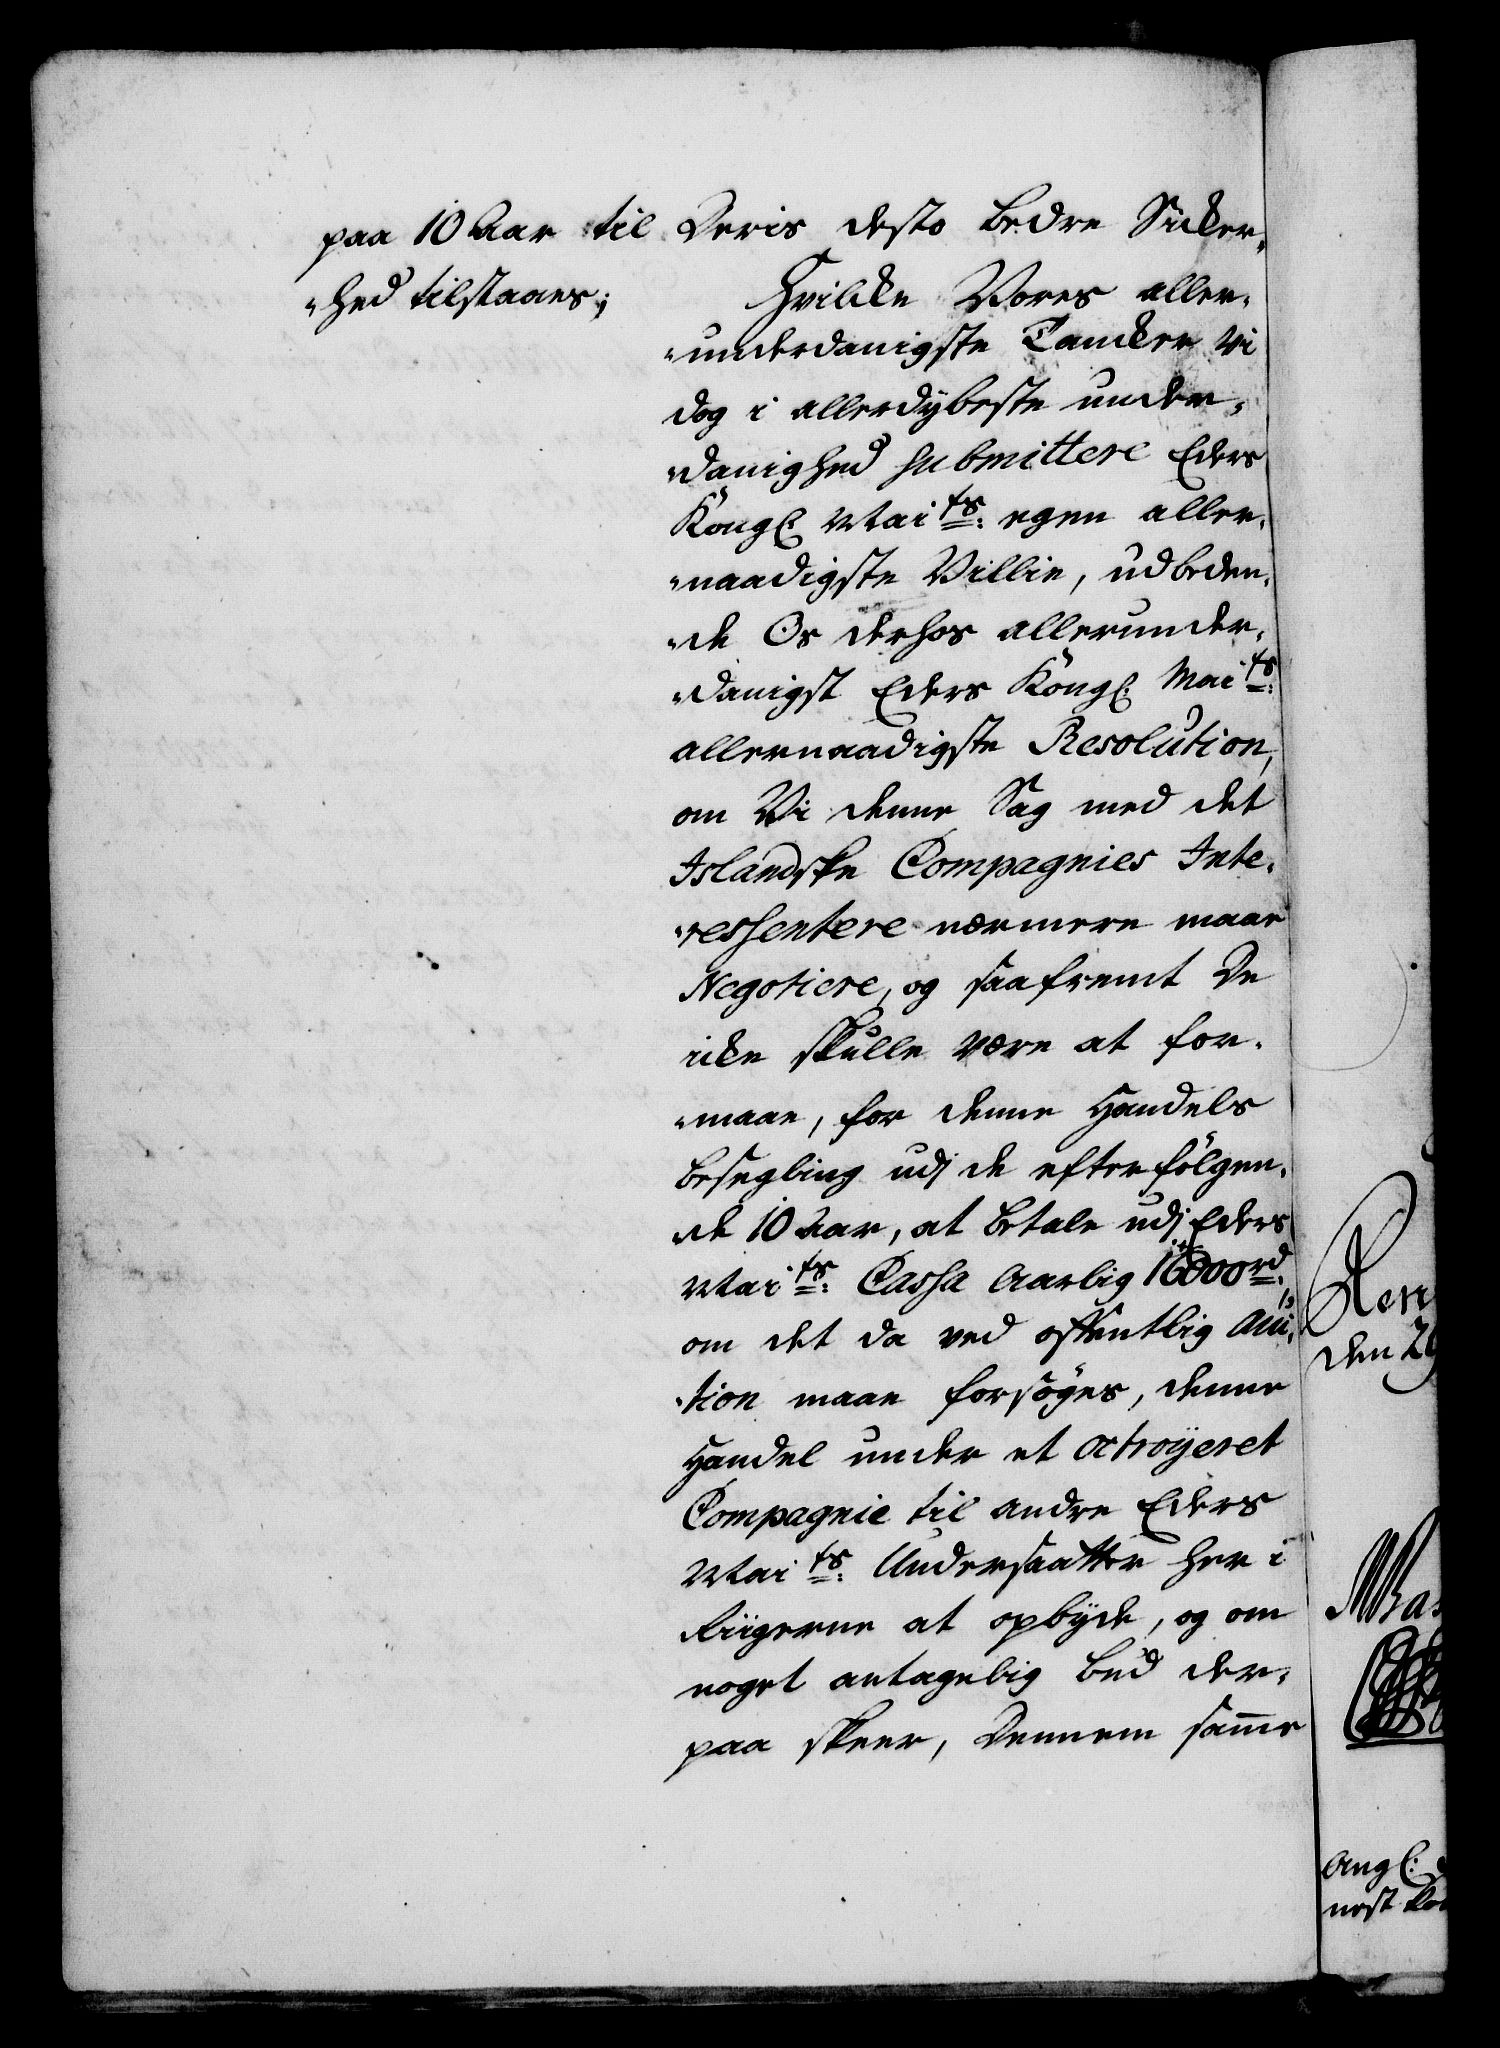 paa 10 Aar til Deris desto bedre Sicker-
-hed tilstaaes;
Hvilcke Vores aller-
-underdanigste Tancker vi
dog i allerdybeste under-
-danighed submittere Eders
Kongl: Mai ts: egen aller-
-naadigste Villie, udbeden-
-de Os derhos allerunder-
-danigst Eders Kongl: Mai ts:
allernaadigste Resolution,
om Vi denne Sag med det
Islandske Compagnies Inte-
-ressentere nærmere maae
Negotiere, og saafremt De
icke skulle være at for-
-maae, for denne Handels
besegling udj de efterfölgen-
-de 10 Aar, at betale udj Eders
Mai ts: Cassa Aarlig 16000 rd:
om det da ved offentlig Auc-
-tion maae forsöges, denne
Handel under et octroÿeret
Compagnie til andre Eders
Mai ts: Undersaatter her i
Riigerne at opbÿde, og om
noget antagelig bud der-
paa skeer, Dennem samme
den 29
Angl: